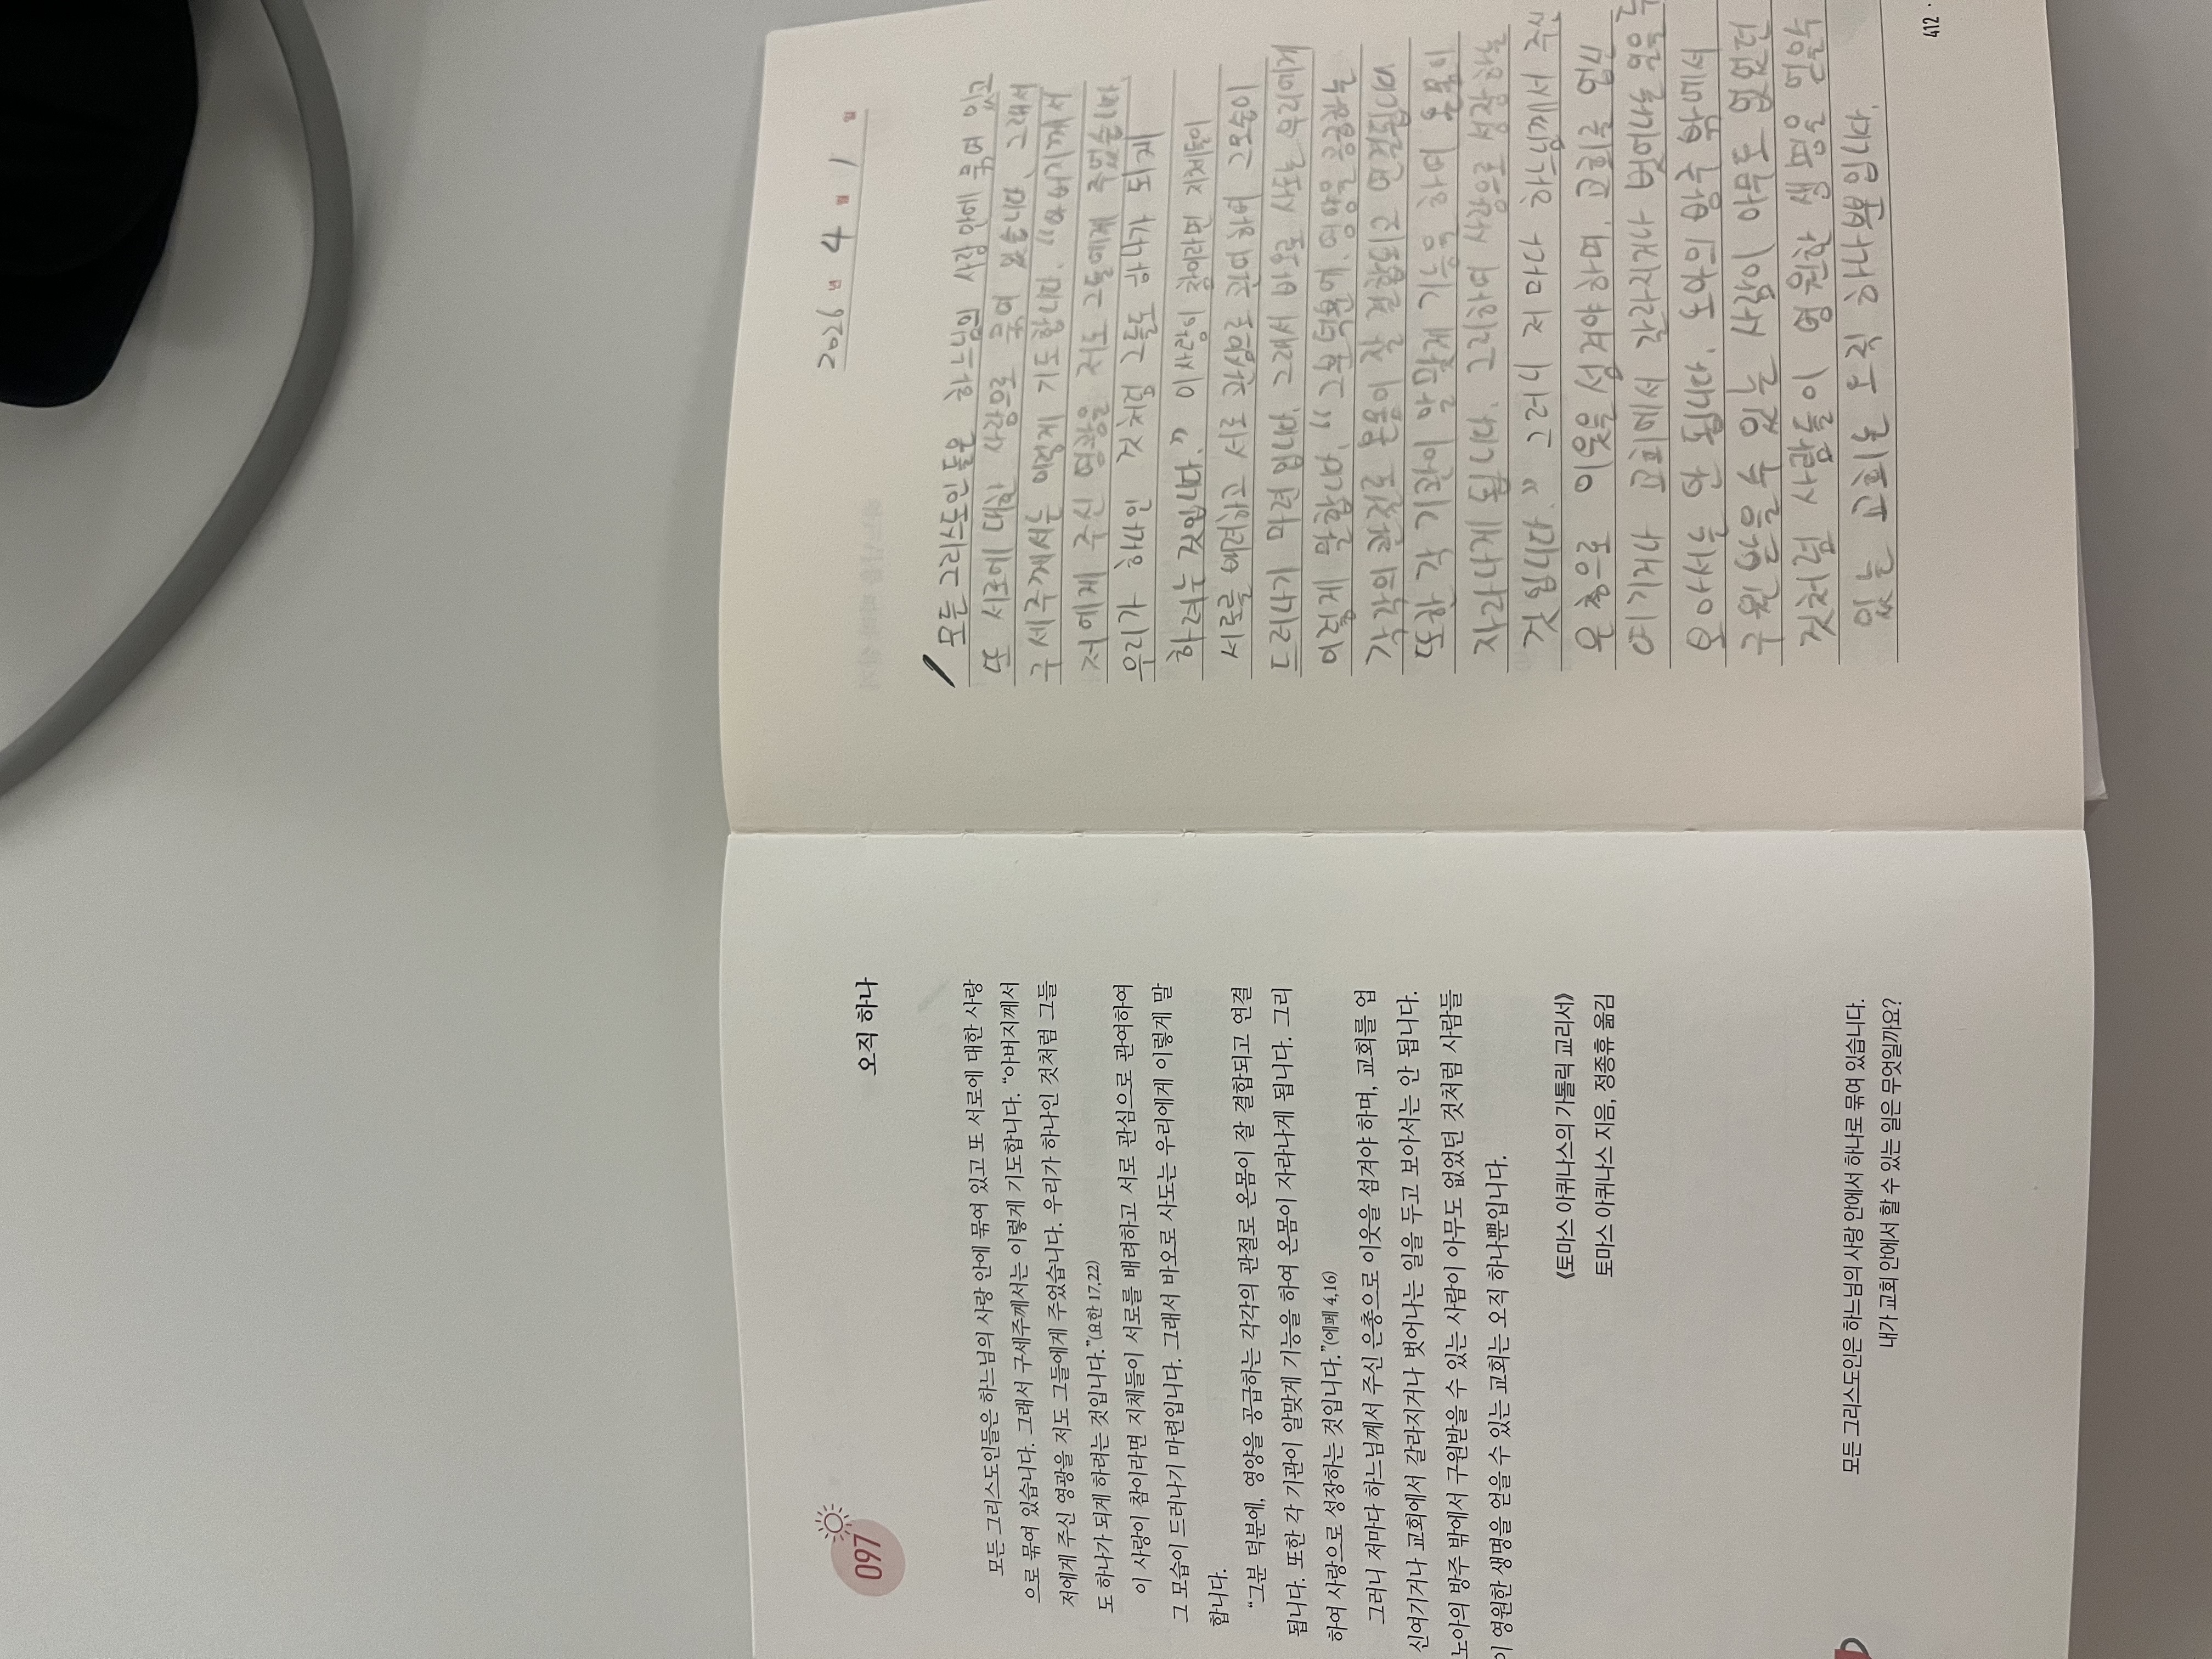 097
오직 하나
모든 그리스도인들은 하느님의 사랑 안에 묶여 있고 또 서로에 대한 사랑
으로 묶여 있습니다. 그래서 구세주께서는 이렇게 기도합니다. “아버지께서
저에게 주신 영광을 저도 그들에게 주었습니다. 우리가 하나인 것처럼 그들
도 하나가 되게 하려는 것입니다.”(요한 17,22)
이 사랑이 참이라면 지체들이 서로를 배려하고 서로 관심으로 관여하여
그 모습이 드러나기 마련입니다. 그래서 바오로 사도는 우리에게 이렇게 말
합니다.
“그분 덕분에, 영양을 공급하는 각각의 관절로 온몸이 잘 결합되고 연결
됩니다. 또한 각 기관이 알맞게 기능을 하여 온몸이 자라나게 됩니다. 그리
하여 사랑으로 성장하는 것입니다.”(에페 4,16)
그러니 저마다 하느님께서 주신 은총으로 이웃을 섬겨야 하며, 교회를 업
신여기거나 교회에서 갈라지거나 벗어나는 일을 두고 보아서는 안 됩니다.
노아의 방주 밖에서 구원받을 수 있는 사람이 아무도 없었던 것처럼 사람들
이 영원한 생명을 얻을 수 있는 교회는 오직 하나뿐입니다.
《토마스 아퀴나스의 가톨릭 교리서》
토마스 아퀴나스 지음, 정종휴 옮김
모든 그리스도인은 하느님의 사랑 안에서 하나로 묶여 있습니다.
내가 교회 안에서 할 수 있는 일은 무엇일까요?
2026 년 4 월 1 일
모든 그리스도인들은 하느님의 사랑 안에 묶여 있고
또 서로에 대한 사랑으로 묶여 있습니다. 그래서
구세주께서는 이렇게 기도합니다. “아버지께서
저에게 주신 영광을 저도 그들에게 주었습니다.
우리가 하나인 것처럼 그들도 하나가 되게
하려는 것입니다.” 이 사랑이 참이라면 지체들이
서로를 배려하고 서로 관심으로 관여하여 그 모습이
드러나기 마련입니다. 그래서 바오로 사도는 우리에게
이렇게 말합니다. “그분 덕분에, 영양을 공급하는
각각의 관절로 온몸이 잘 결합되고 연결됩니다
또한 각 기관이 알맞게 기능을 하여 온몸이
자라나게 됩니다. 그리하여 사랑으로 성장하는
것입니다.” 그러니 저마다 하느님께서 주신
은총으로 이웃을 섬겨야 하며, 교회를 업신
여기거나 교회에서 갈라지거나 벗어나는 일을 두
보아서는 안 됩니다. 노아의 방주 밖에서
구원받을 수 있는 사람이 아무도 없었던
것처럼 사람들이 영원한 생명을 얻을 수
있는 교회는 오직 하나뿐입니다.
412 ·